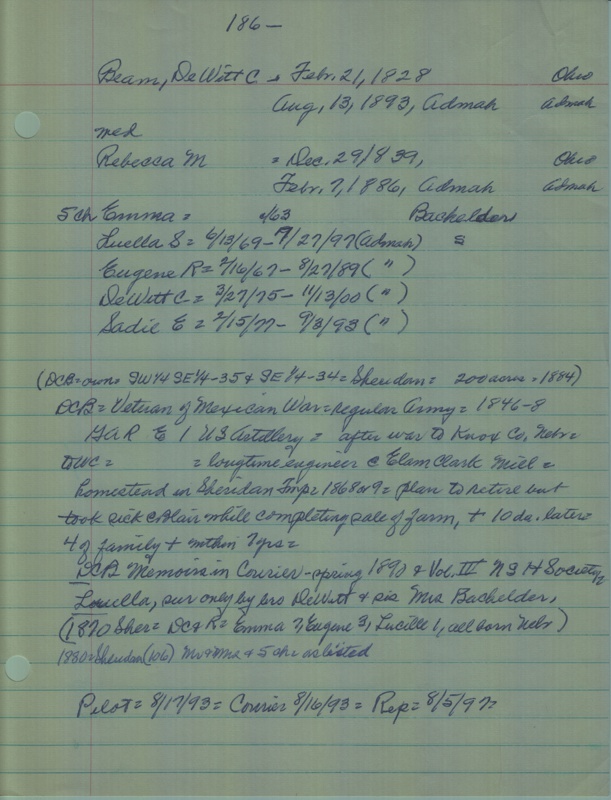 186-
Beam, DeWitt C = Febr. 21, 1828 Ohio
Aug, 13, 1893, Admah Admah
med
Rebecca M = Dec. 29/839, Ohio
Febr. 7, 1886, Admah Admah
5 ch Emma = /63 Bachelders
Luella S = 6/13/69-9/27/97 (Admah)
Eugene R = 2/16/67-8/27/89 ( " )
DeWitt C = 3/27/75-11/13/00 ( " )
Sadie E = 2/15/77-9/3/93 ( " )
(DCB = owns SW1/4 SE1/4-35 & SE 1/4-34 = Sheridan = 200 acres = 1884)
DCB = Veteran of Mexican War = Regular Army = 1846-8
GAR E 1 US Artillery = after war to Knox Co, Nebr =
to WC = = longtime engineer c Elam Clark Mill =
homestead in Sheridan Twp = 1868 or 9 = plan to retire but
took sick c Blair while completing sale of farm, + 10 da. later =
4 of family + within 7 yrs =
DCB Memoirs in Courier - spring 1890 & Vol. III NSH Society,
Louella, sur only by bro DeWitt & sis Mrs Bachelder,
(1870 Sher = DC & R = Emma 7, Eugene 3, Lucille 1, all born Nebr)
1880 = Sheridan (106) Mr & Mrs & 5 chr as listed
Pilot = 8/17/93 = Courier 8/16/93 = Rep = 8/5/97 =